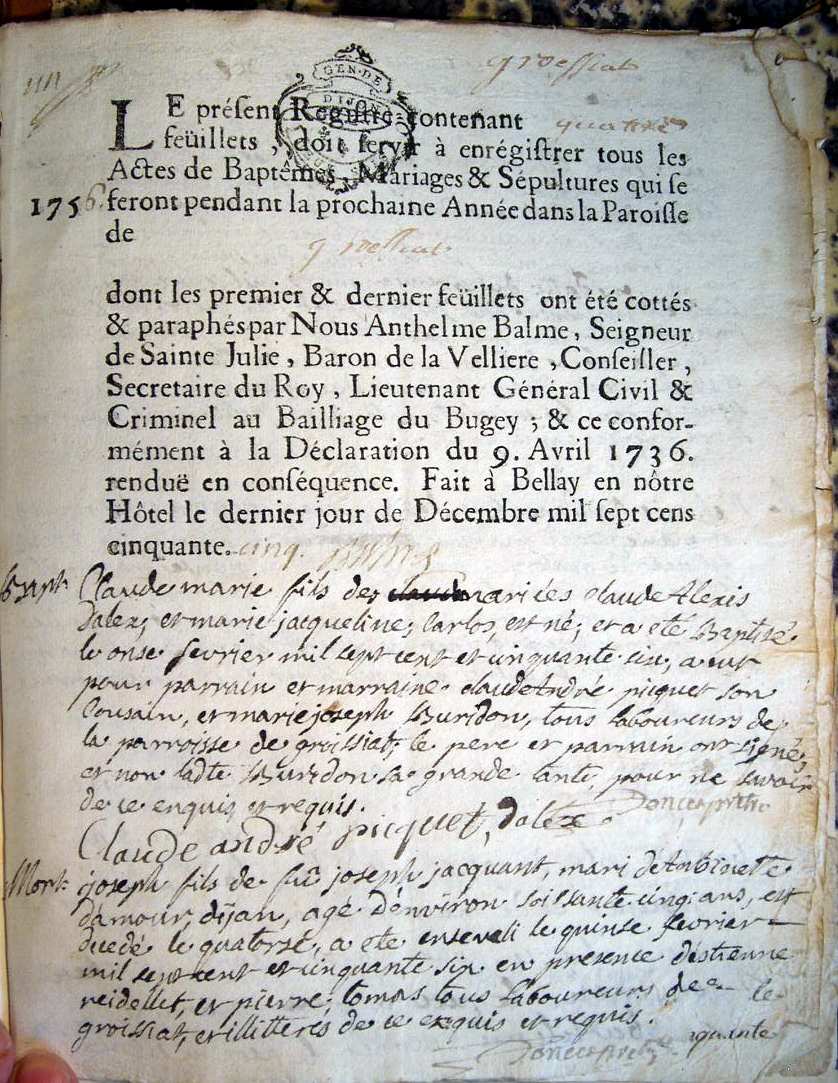 groissiat
GEN. DE
DIJON
LE préſent Regiſtre contenant quatre
feüillets, doit ſervir à enrégiſtrer tous les
Actes de Baptêmes, Mariages & Sépultures qui ſe
1756. feront pendant la prochaine Année dans la Paroiſſe
de groissiat
dont les premier & dernier feüillets ont été cottés
& paraphés par Nous Anthelme Balme, Seigneur
de Sainte Julie, Baron de la Velliere, Conſeiller,
Secretaire du Roy, Lieutenant Général Civil &
Criminel au Bailliage du Bugey ; & ce confor-
mément à la Déclaration du 9. Avril 1736.
renduë en conſéquence. Fait à Bellay en nôtre
Hôtel le dernier jour de Décembre mil ſept cens
cinquante. cinq. Balme
Bapt. Claude marie fils des mariés claude Alexis
Dalex, et marie jacqueline, Carlos, est né, et a été Baptisé
le onse fevrier mil sept cent et cinquante six, a eut
pour parrain et marraine claude André picquet son
Cousain, et marie joseph Buridon, tous laboureurs de
la parroisse de groissiat, le pere et parrain ont signé,
et non ladte Buridon sa grande tante, pour ne savoir
de ce enquis et requis.
Claude andré picquet, Dalex
Mort joseph fils de fû joseph jacquant, mari d'Antoinette
damour, dijan, agé d'environ soissante cinq ans, est
decedé le quatorse, a été enseveli le quinse fevrier
mil sept cent et cinquante six en presence d'estienne
reidellet, et pierre tomas tous laboureurs de
groissiat, et illitterés de ce enquis et requis.
quante